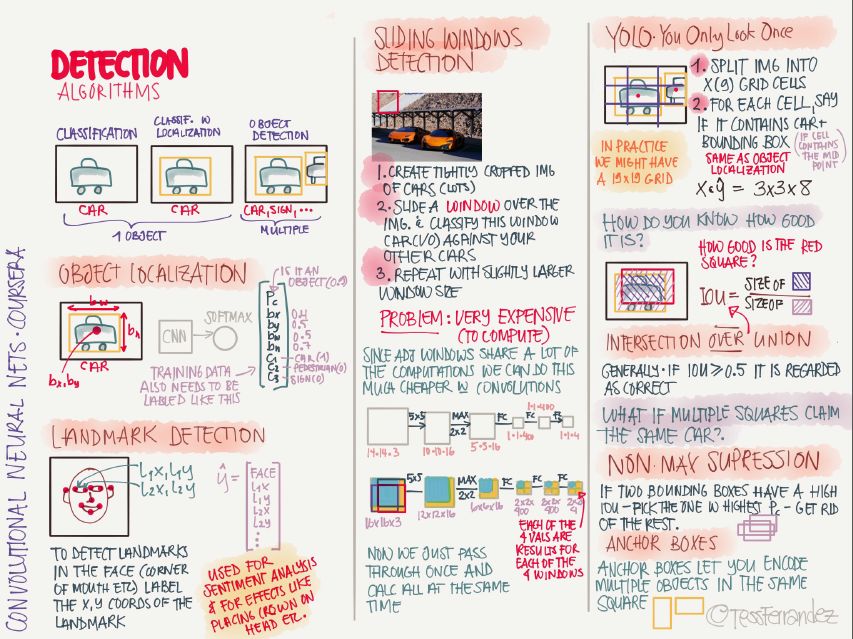 DETECTION
ALGORITHMS
CLASSIFICATION
CLASSIF. W
LOCALIZATION
OBJECT
DETECTION
CAR
CAR
CAR, SIGN, ...
1 OBJECT
MULTIPLE
OBJECT LOCALIZATION
IS IT AN
OBJECT (0.9)
bw
bh
bx, by
CAR
CNN
SOFTMAX
Pc
bx 0.4
by 0.5
bw 0.5
bh 0.7
C1 - CAR (1)
C2 - PEDESTRIAN (0)
C3 - SIGN (0)
TRAINING DATA
ALSO NEEDS TO BE
LABLED LIKE THIS
LANDMARK DETECTION
l1x, l1y
l2x, l2y
ŷ =
FACE
l1x
l1y
l2x
l2y
⋮
TO DETECT LANDMARKS
IN THE FACE (CORNER
OF MOUTH ETC) LABEL
THE X,Y COORDS OF THE
LANDMARK
USED FOR
SENTIMENT ANALYSIS
& FOR EFFECTS LIKE
PLACING CROWN ON
HEAD ETC.
CONVOLUTIONAL NEURAL NETS · COURSERA
SLIDING WINDOWS
DETECTION
1. CREATE TIGHTLY CROPPED IMG
OF CARS (LOTS)
2. SLIDE A WINDOW OVER THE
IMG. & CLASSIFY THIS WINDOW
CAR (1/0) AGAINST YOUR
OTHER CARS
3. REPEAT WITH SLIGHTLY LARGER
WINDOW SIZE
PROBLEM: VERY EXPENSIVE
(TO COMPUTE)
SINCE ADJ WINDOWS SHARE A LOT OF
THE COMPUTATIONS WE CAN DO THIS
MUCH CHEAPER W CONVOLUTIONS
5x5
MAX
2x2
FC
FC
FC
14·14·3
10·10·16
5·5·16
1·1·400
1·1·400
1·1·4
5x5
MAX
2x2
FC
FC
FC
16x16x3
12x12x16
6x6x16
2x2x
400
2x2x
400
2x2x
4
EACH OF THE
4 VALS ARE
RESULTS FOR
EACH OF THE
4 WINDOWS
NOW WE JUST PASS
THROUGH ONCE AND
CALC ALL AT THE SAME
TIME
YOLO · You Only Look Once
1. SPLIT IMG INTO
X(9) GRID CELLS
2. FOR EACH CELL, SAY
IF IT CONTAINS CAR +
BOUNDING BOX
(IF CELL
CONTAINS
THE MID
POINT)
IN PRACTICE
WE MIGHT HAVE
A 19x19 GRID
SAME AS OBJECT
LOCALIZATION
X & ŷ = 3x3x8
HOW DO YOU KNOW HOW GOOD
IT IS?
HOW GOOD IS THE RED
SQUARE?
IOU =
SIZE OF
SIZE OF
INTERSECTION OVER UNION
GENERALLY · IF IOU ≥ 0.5 IT IS REGARDED
AS CORRECT
WHAT IF MULTIPLE SQUARES CLAIM
THE SAME CAR?
NON·MAX SUPRESSION
IF TWO BOUNDING BOXES HAVE A HIGH
IOU – PICK THE ONE W HIGHEST Pc – GET RID
OF THE REST.
ANCHOR BOXES
ANCHOR BOXES LET YOU ENCODE
MULTIPLE OBJECTS IN THE SAME
SQUARE
@TessFerrandez